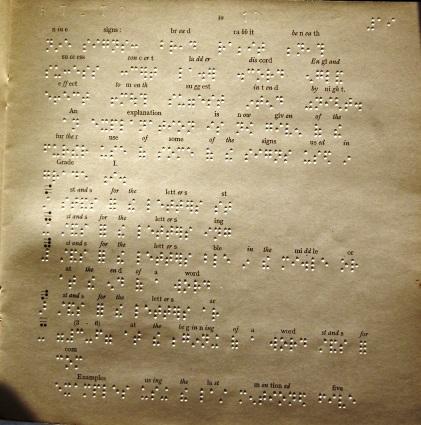 10
n in e signs: br ea d ra bb it be n ea th
su cc ess con c er t la dd er dis cord En gl and
e ff ect to m on th su gg est in t en d by ni gh t.
An explanation is n ow giv en of the
fur the r use of some of the signs us ed in
Grade I.
st and s for the lett er s st
st and s for the lett er s ing
st and s for the lett er s ble in the mi dd le or
at the en d of a word
st and s for the lett er s ar
(3 - 6) at the be g in n ing of a word st and s for
com
Examples us ing the la st m en tion ed five